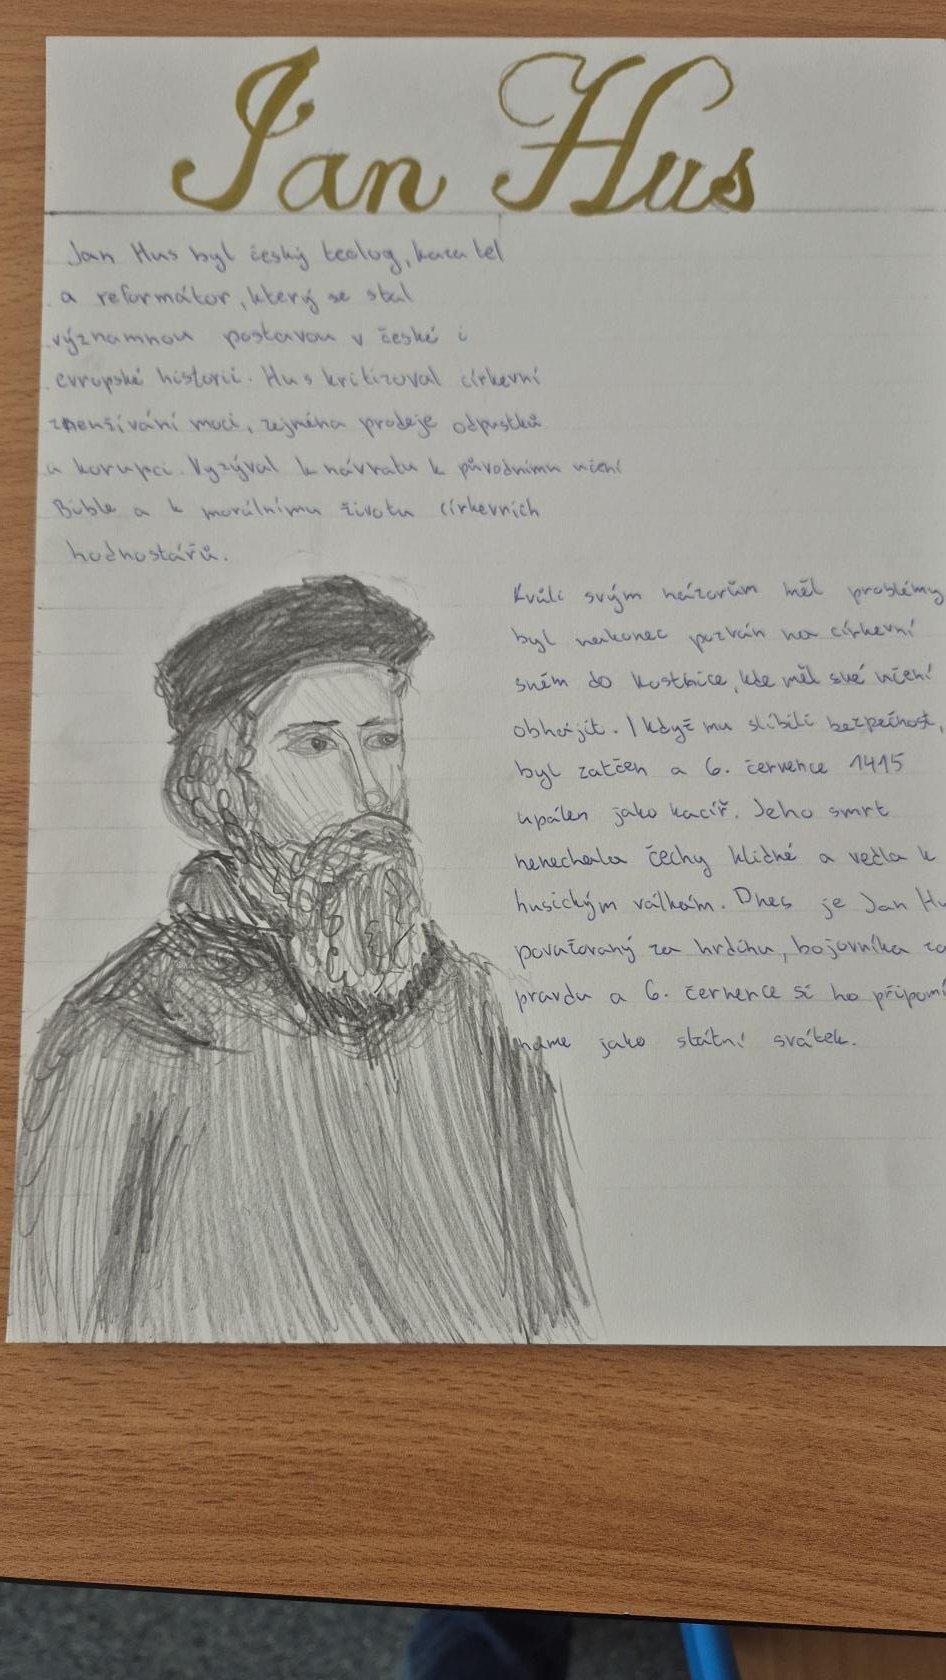 Jan Hus
Jan Hus byl český teolog, kazatel
a reformátor, který se stal
významnou postavou v české i
evropské historii. Hus kritizoval církevní
zneužívání moci, zejména prodeje odpustků
a korupci. Vyzýval k návratu k původnímu učení
Bible a k morálnímu životu církevních
hodnostářů.
Kvůli svým názorům měl problémy
byl nakonec pozván na církevní
sněm do Kostnice, kde měl své učení
obhájit. I když mu slíbili bezpečnost,
byl zatčen a 6. července 1415
upálen jako kacíř. Jeho smrt
nenechala čechy klidné a vedla k
husickým válkám. Dnes je Jan Hu
považovaný za hrdinu, bojovníka za
pravdu a 6. července si ho připomí
náme jako státní svátek.